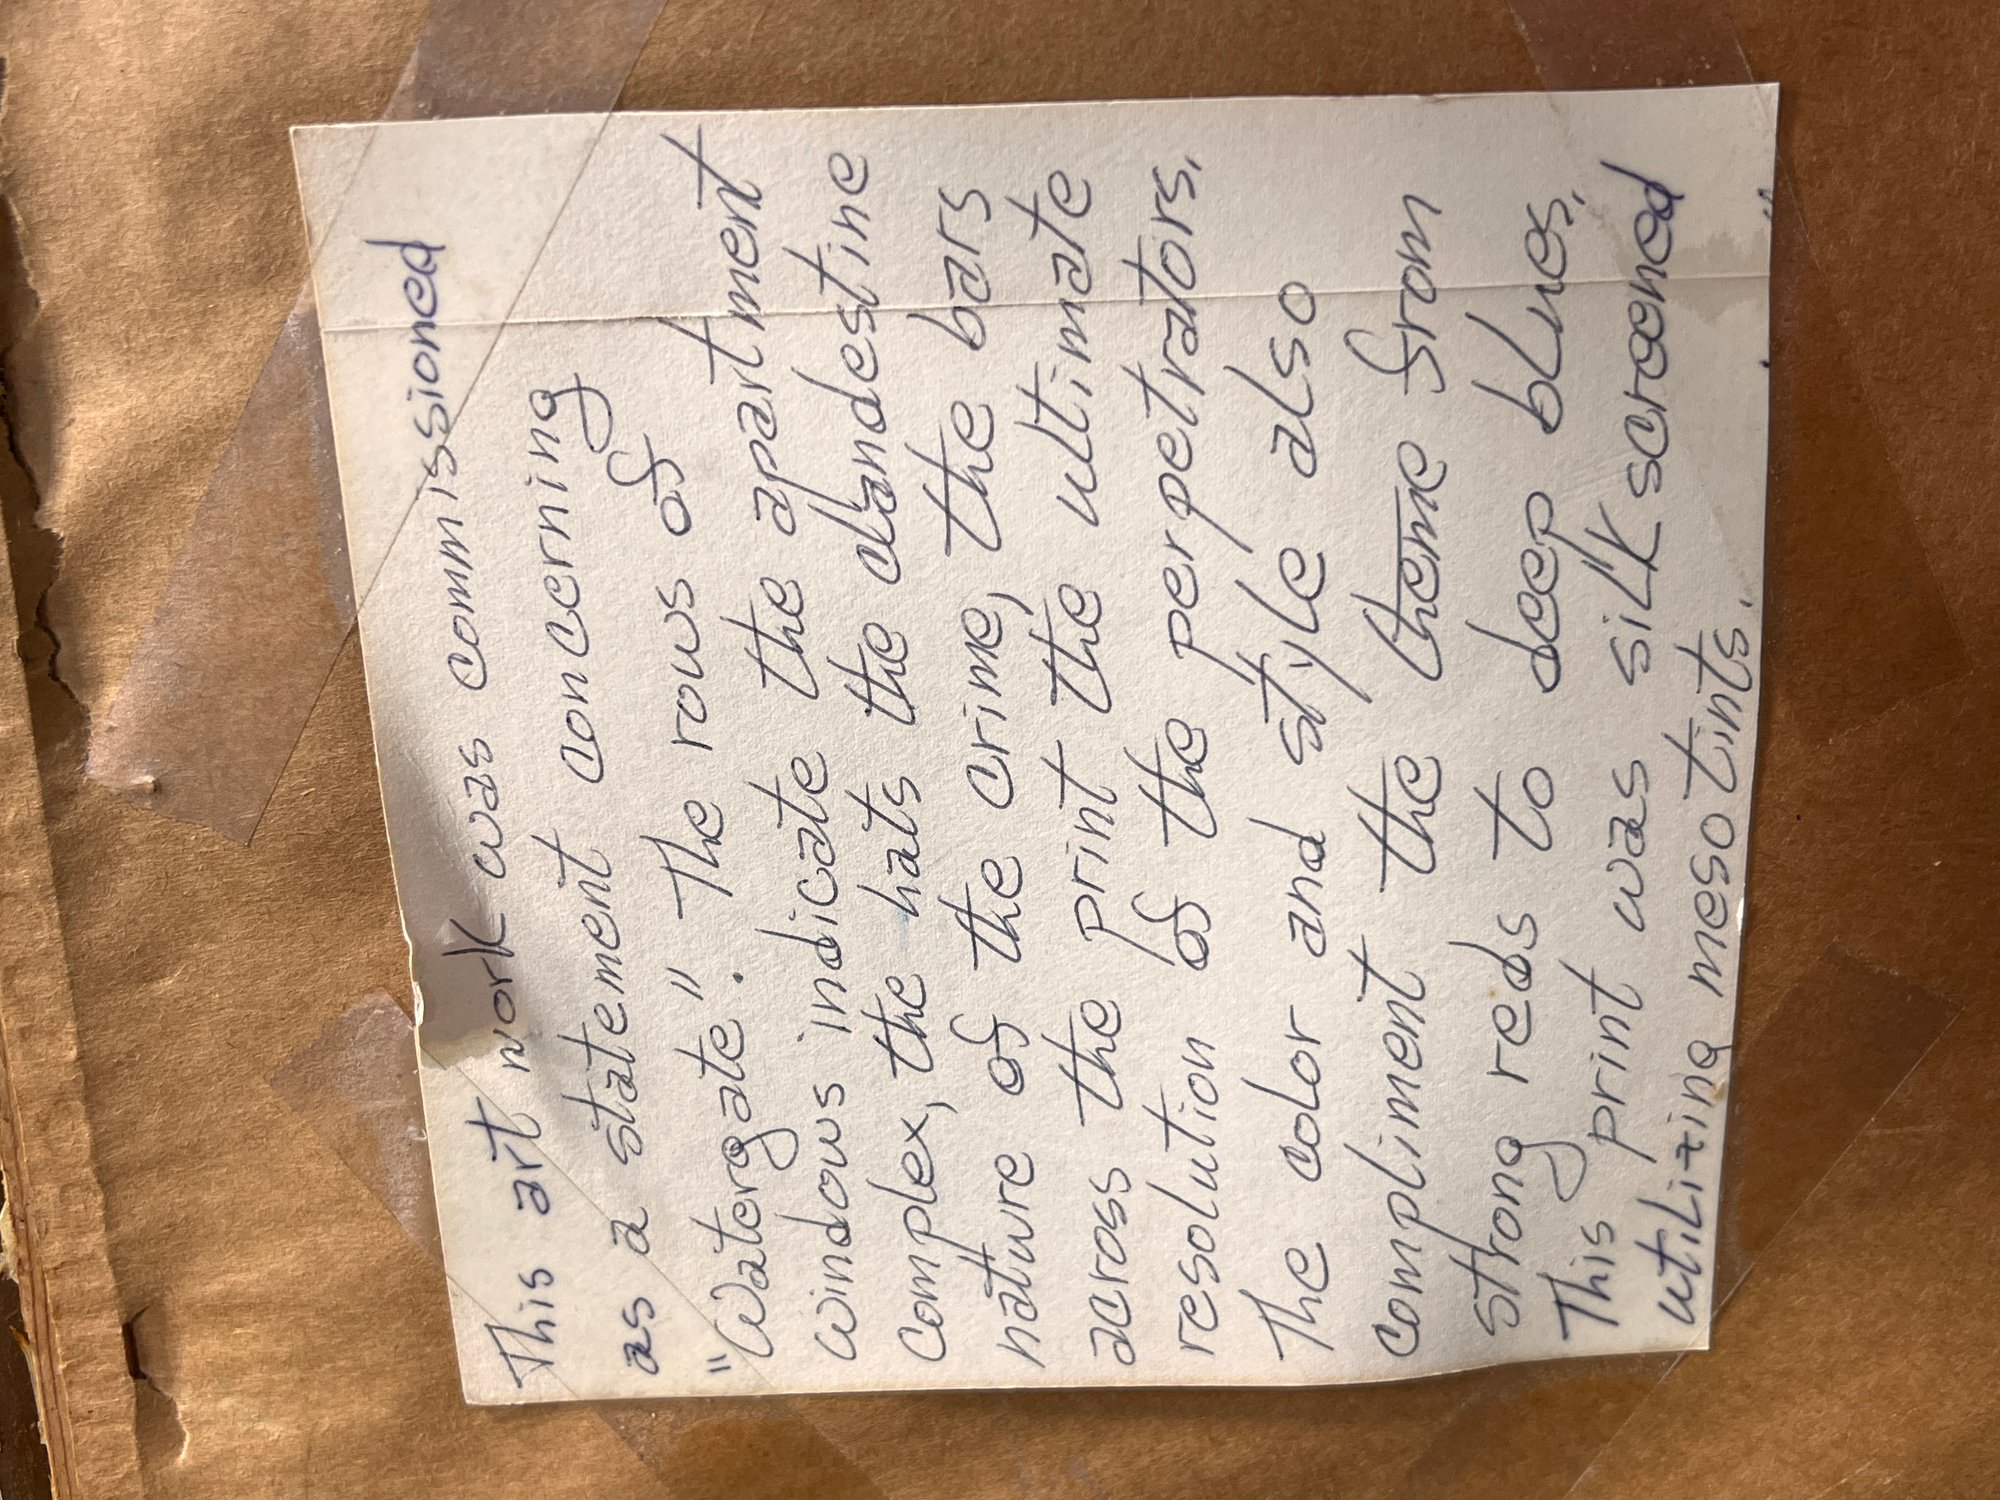 This art work was commissioned
as a statement concerning
"Watergate". The rows of
windows indicate the apartment
complex, the hats the clandestine
nature of the crime, the bars
across the print the ultimate
resolution of the perpetrators.
The color and style also
compliment the theme from
strong reds to deep blues.
This print was silk screened
utilizing meso tints.